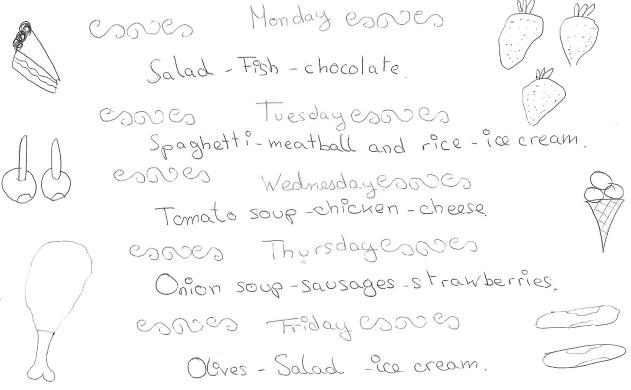 Monday
Salad - Fish - chocolate.
Tuesday
Spaghetti - meatball and rice - ice cream.
Wednesday
Tomato soup - chicken - cheese
Thursday
Onion soup - sausages - strawberries.
Friday
Olives - Salad - ice cream.